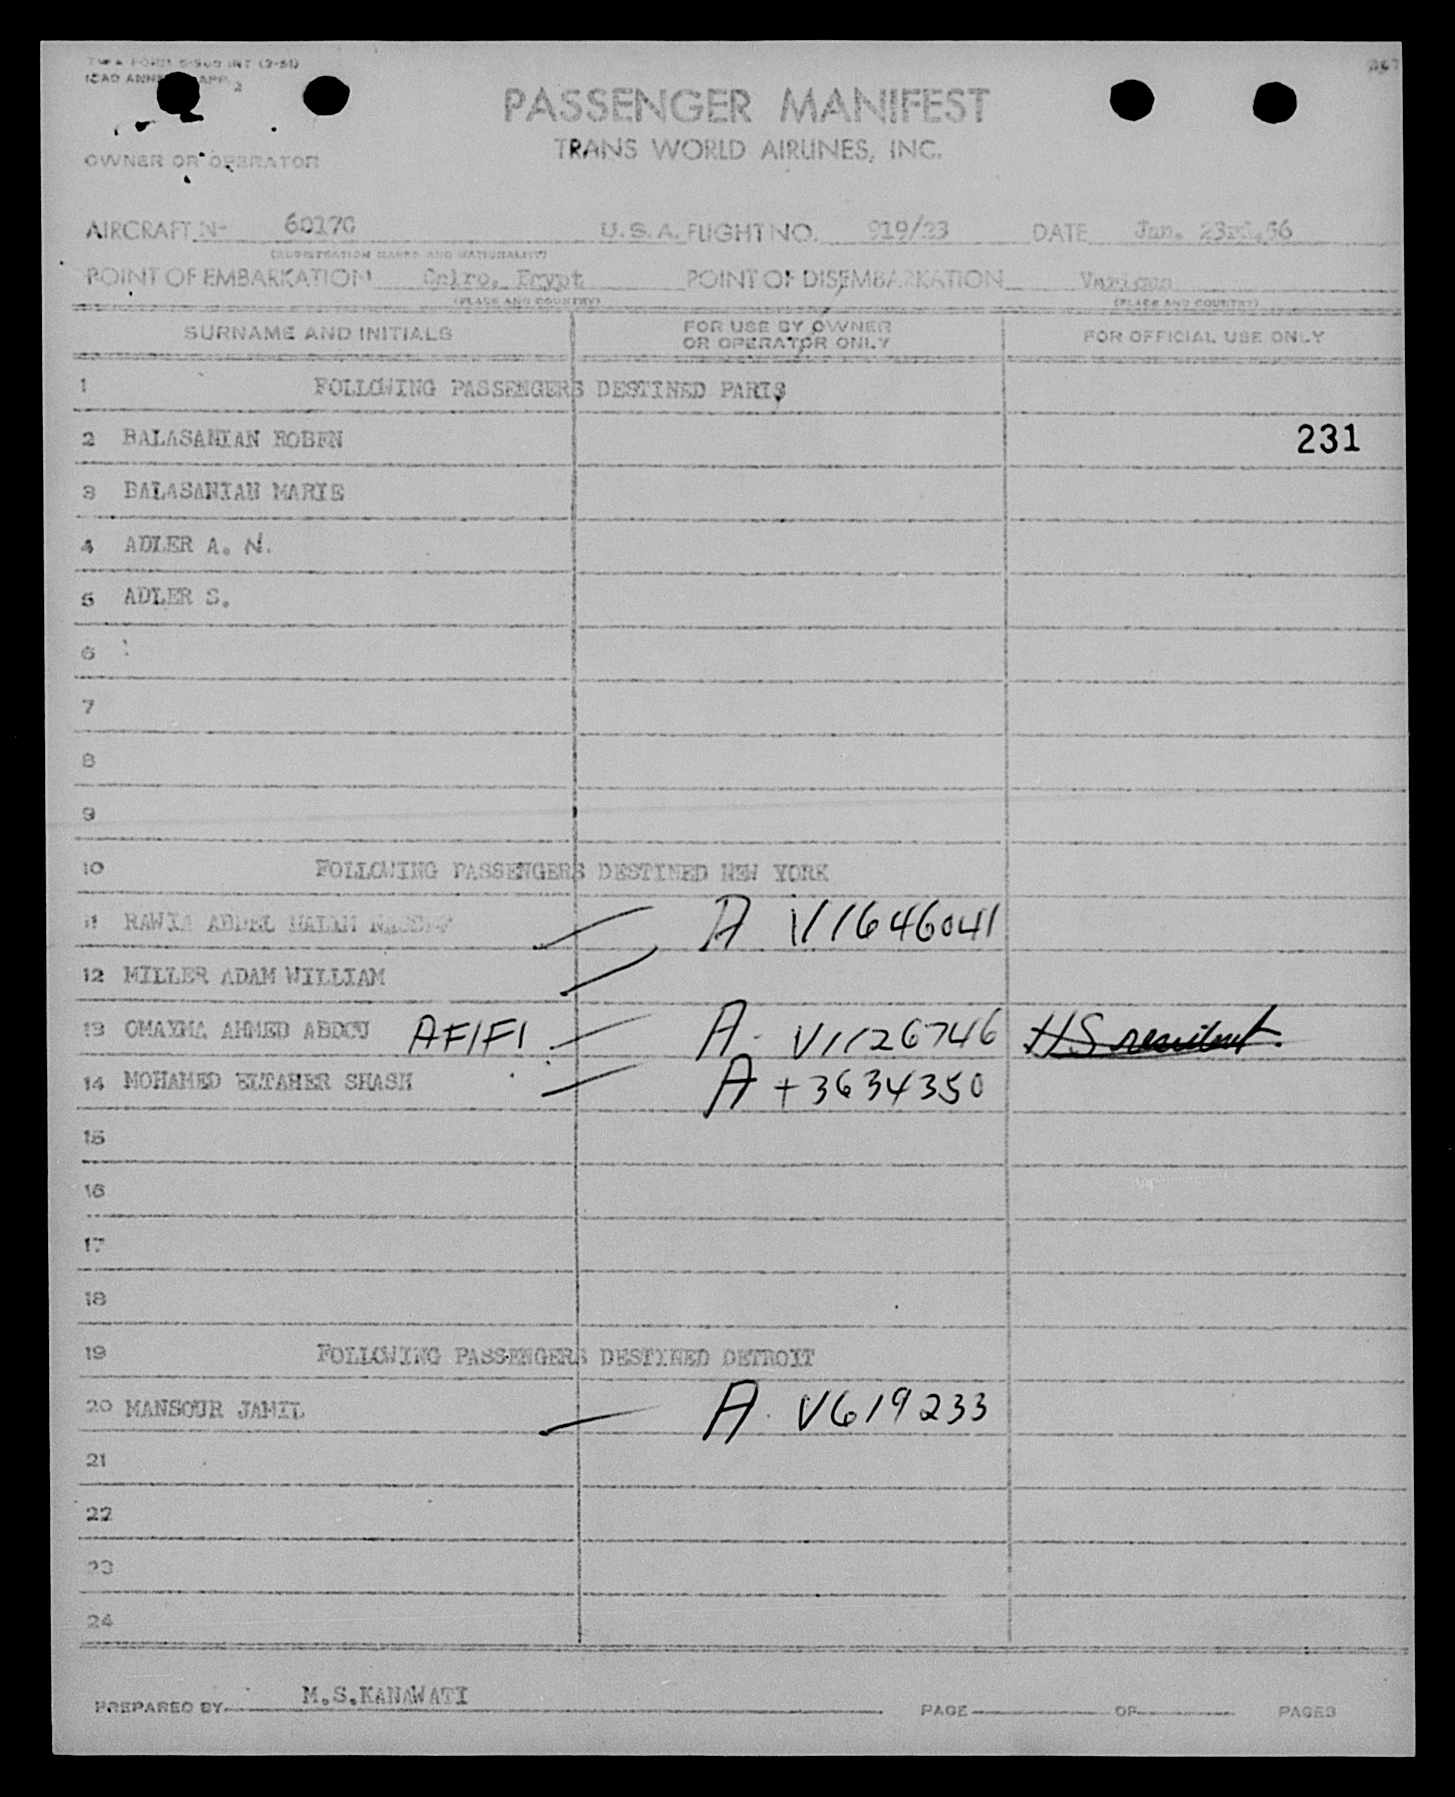 TWA FORM INT (2-51)
ICAO ANNEX APP. 2
PASSENGER MANIFEST
TRANS WORLD AIRLINES, INC.
OWNER OR OPERATOR
AIRCRAFT N- 6017C U.S.A. FLIGHT NO. 919/23 DATE Jan. 23rd,56
(REGISTRATION MARKS AND NATIONALITY)
POINT OF EMBARKATION Cairo, Egypt POINT OF DISEMBARKATION Various
(PLACE AND COUNTRY) (PLACE AND COUNTRY)
SURNAME AND INITIALS FOR USE BY OWNER OR OPERATOR ONLY FOR OFFICIAL USE ONLY
1 FOLLOWING PASSENGERS DESTINED PARIS
2 BALASANIAN ROBEN 231
3 BALASANIAN MARIE
4 ADLER A. N.
5 ADLER S.
6
7
8
9
10 FOLLOWING PASSENGERS DESTINED NEW YORK
11 RAWIA ABDEL A V1646041
12 MILLER ADAM WILLIAM
13 OMAYMA AHMED ABDOU AFIFI A- V1126746 HS resident
14 MOHAMED ELTAHER SHASH A +3634350
15
16
17
18
19 FOLLOWING PASSENGERS DESTINED DETROIT
20 MANSOUR JAMIL A. V619233
21
22
23
24
PREPARED BY M.S.KANAWATI PAGE OF PAGES